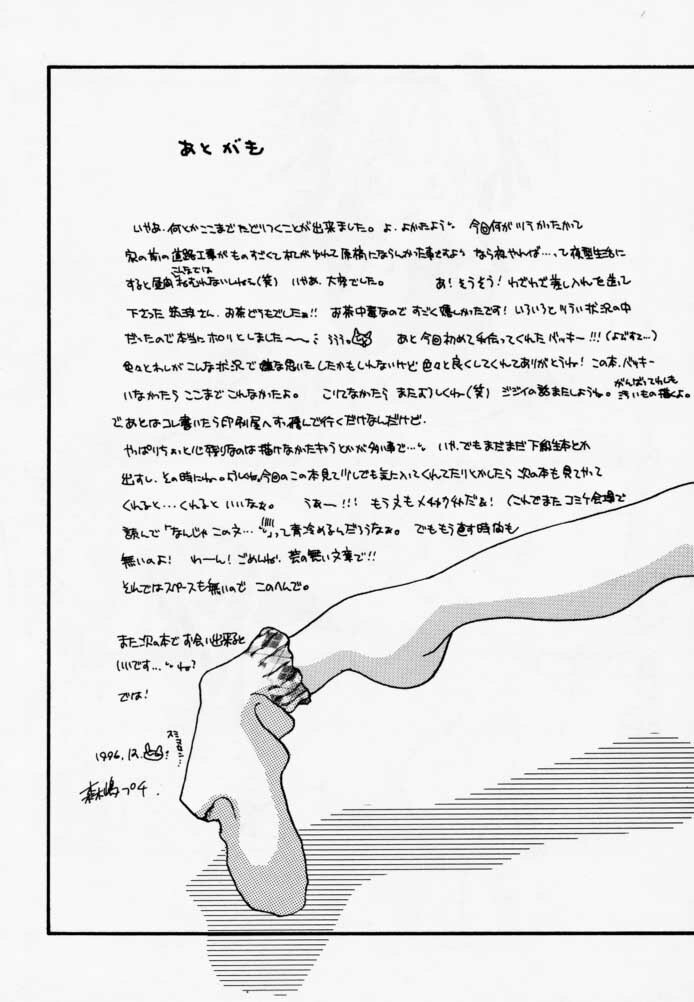 あとがき
いやあ、何とかここまでたどりつくことが出来ました。よ、よかったよう。 今回何がツラかったかって
家の前の道路工事がものすごくて机がゆれて原稿にならんかった事ですよう なら夜やれば…って夜型生活に
すると昼間こんなではねむれないしねぇ(笑) いやあ、大変でした。 あ!そうそう!わざわざ差し入れを送って
下さった さん、お茶どうもでしたぁ!! お茶中毒なのですごく嬉しかったです!いろいろとツラい状況の中
だったので本当にホロリとしました〜〜 あと今回初めて手伝ってくれたバッキー!!!(よびすて…)
色々とわしがこんな状況で嫌な思いもしたかもしれないけど色々と良くしてくれてありがとうね!この本、バッキー
いなかったらここまでこれなかったよ。 こりてなかったらまたよろしくねー(笑) ジジイの話またしようね。がんばってわしも渋いもの描くよ。
であとはコレ書いたら印刷屋へすっ飛んで行くだけなんだけど、
やっぱりちょっと心残りなのは描けなかったキャラとかが多い事で…。 いや、でもまだまだ下級生本とか
出すし、その時にね。らしくね、今回のこの本見て少しでも気に入ってくれてたりとかしたら次の本も見てやって
くれると…くれるといいなぁ。 うあー!!! もう文もメチャクチャだぁ!(これでまたコミケ会場で
読んで「なんじゃこの文…」って青冷めるんだろうなぁ。 でももう直す時間も
無いのよ! わーん!ごめんね、芸の無い文章で!!
それではスペースも無いのでこのへんで。
また次の本でお会い出来ると
いいです…ね?
では!
1996.12.
スミマセン…
森嶋プチ.